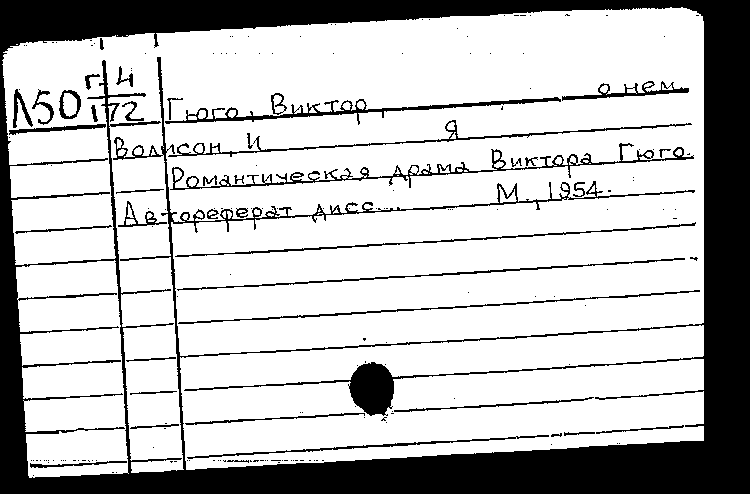 Л50 г-4/172 Гюго, Виктор, о нем.
Волисон, И Я
Романтическая драма Виктора Гюго.
Автореферат дисс... М., 1954.